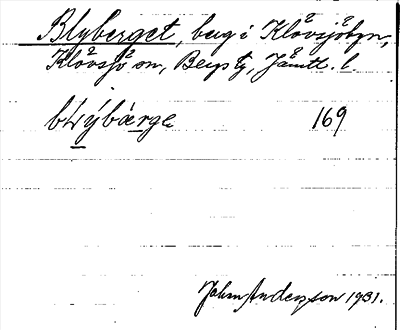 Blyberget, berg i Klövsjöbyn,
Klövsjö sn, Bergs tg, Jämtl. l.
169
John Anderzson 1931.